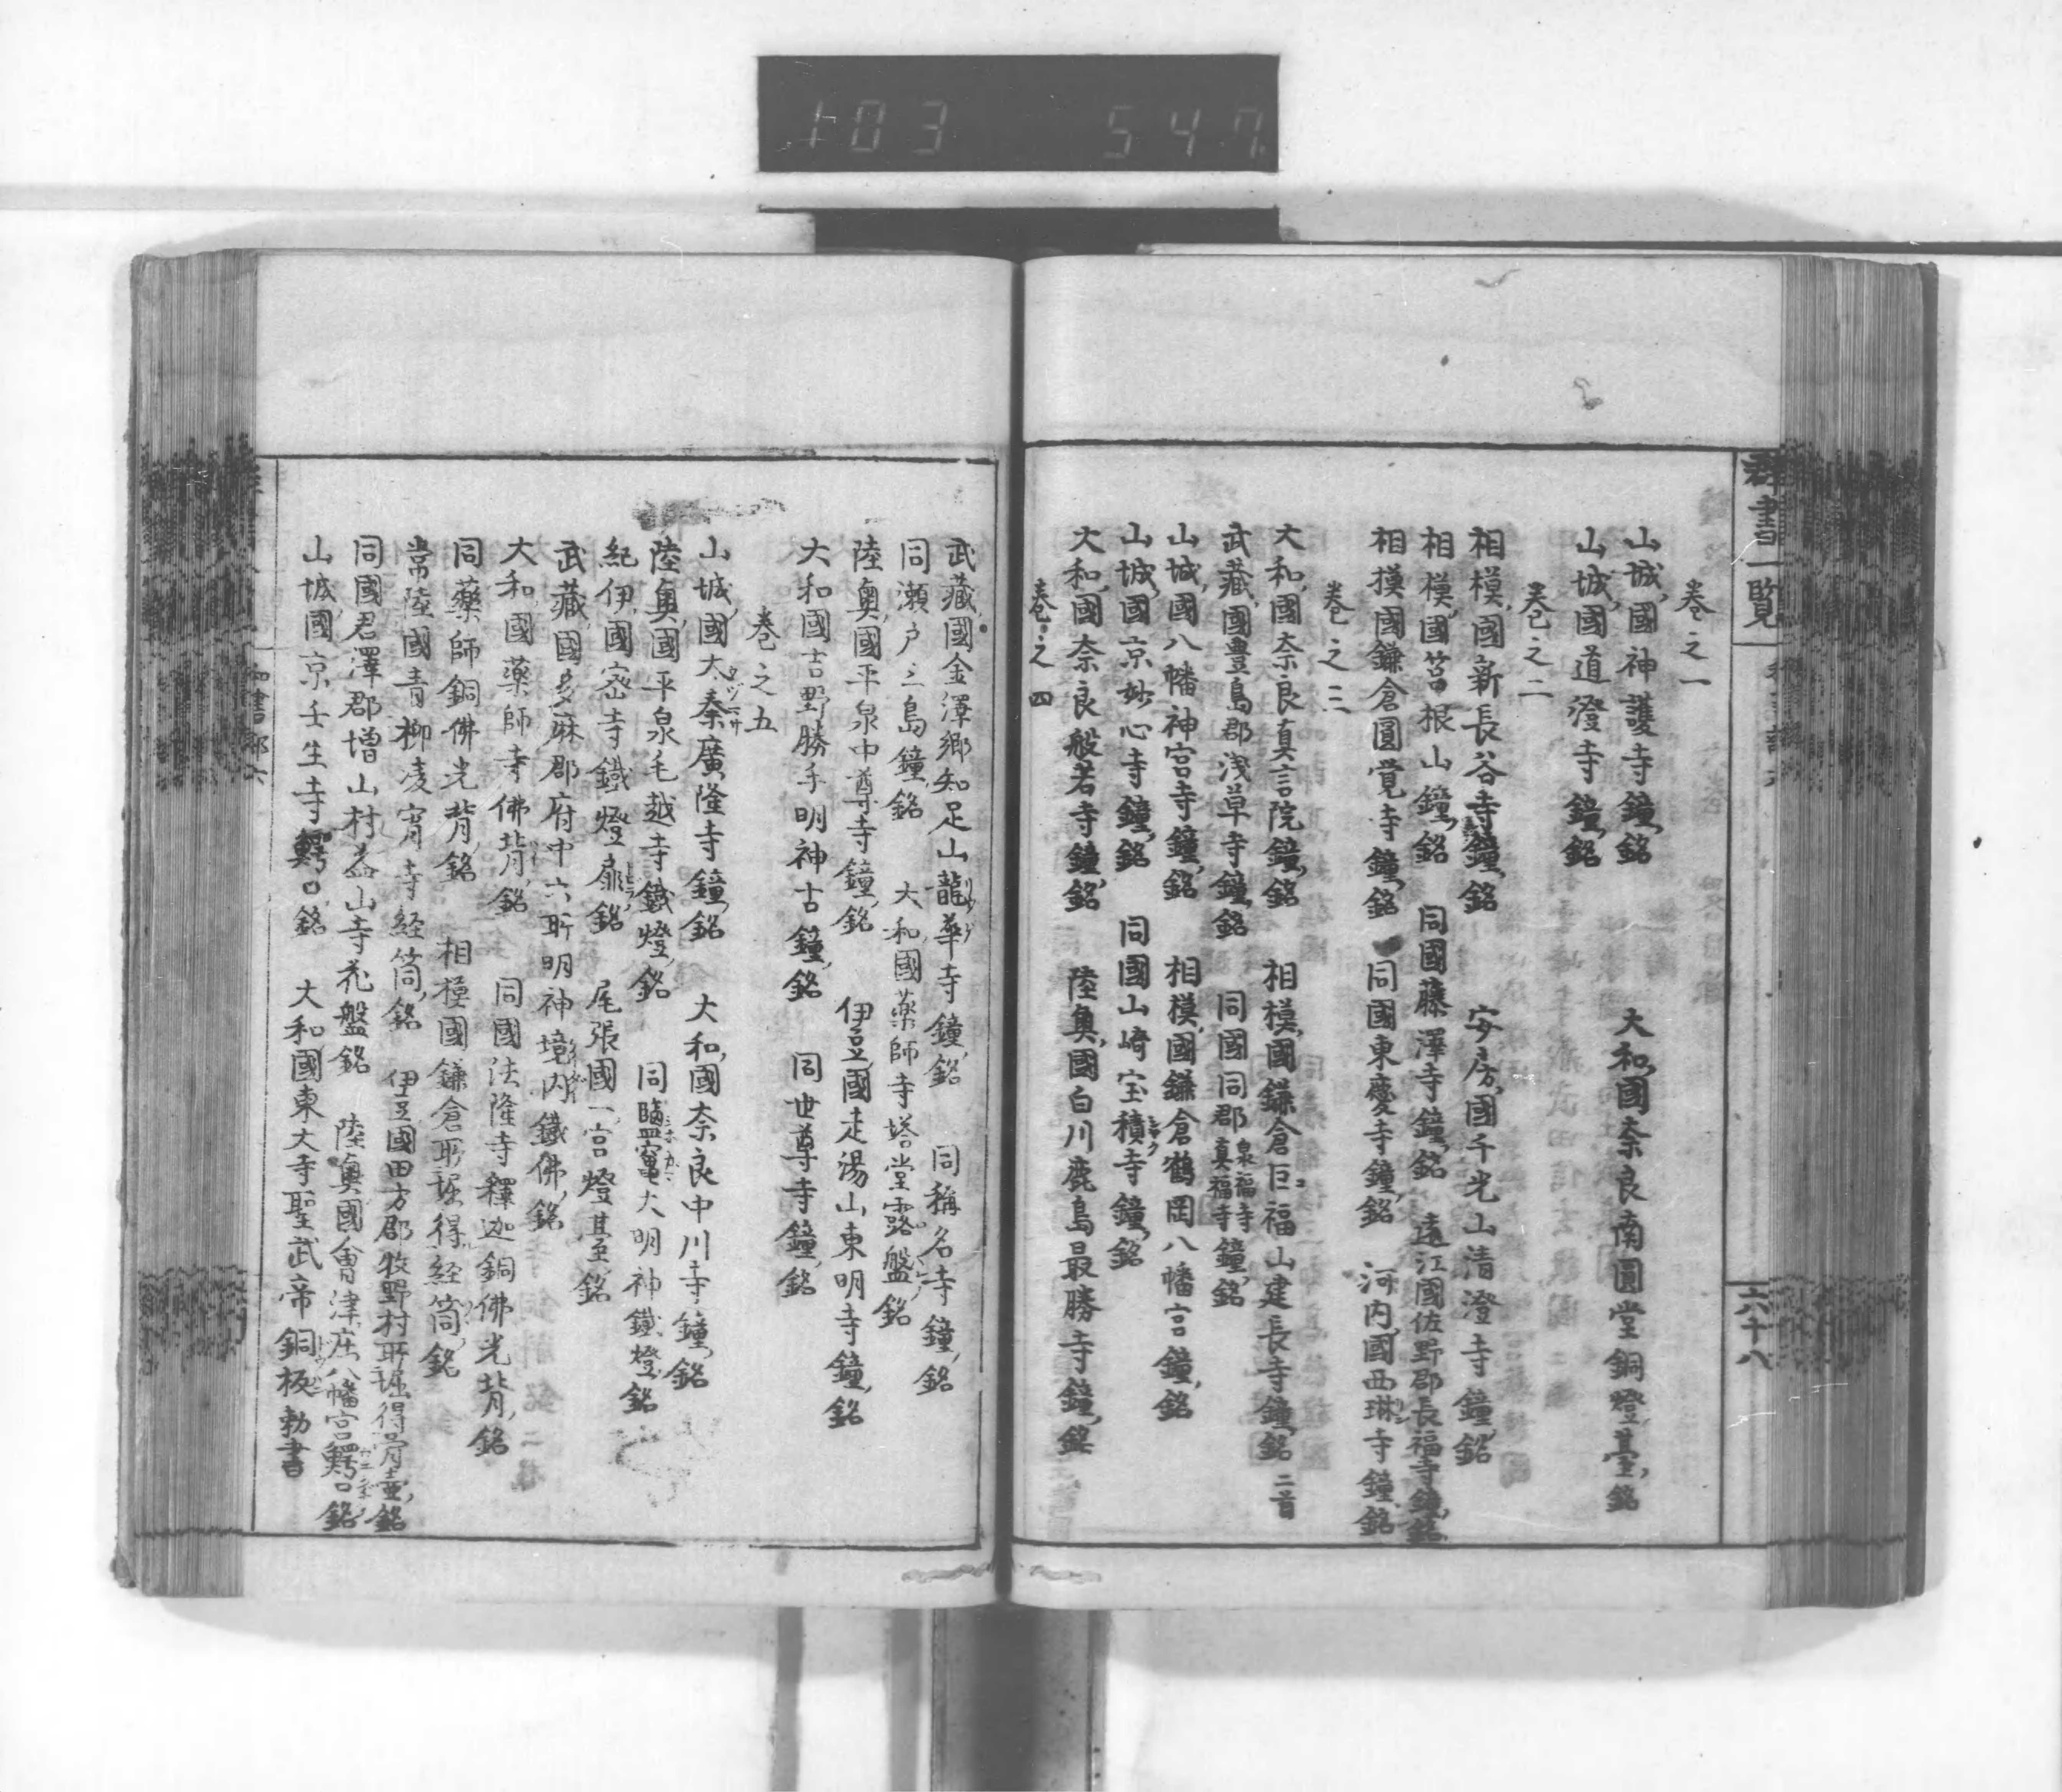 103 547
群書一覧
六十八
巻之一
山城國神護寺鐘銘　大和國奈良南圓堂銅燈臺銘
山城國道澄寺鐘銘
巻之二
相模國新長谷寺鐘銘　安房國千光山清澄寺鐘銘
相模國筥根山鐘銘　同國藤澤寺鐘銘　遠江國佐野郡長福寺鐘銘
相摸國鎌倉圓覚寺鐘銘　同國東慶寺鐘銘　河内國西琳寺鐘銘
巻之三
大和國奈良真言院鐘銘　相模國鎌倉巨福山建長寺鐘銘二首
武藏國豊島郡浅草寺鐘銘　同國同郡泉福寺真福寺鐘銘
山城國八幡神宮寺鐘銘　相模國鎌倉鶴岡八幡宮鐘銘
山城國京妙心寺鐘銘　同國山崎宝積寺鐘銘
大和國奈良般若寺鐘銘　陸奥國白川鹿島最勝寺鐘銘
巻之四
武藏國金澤郷知足山龍華寺鐘銘　同稱名寺鐘銘
同瀬戸三島鐘銘　大和國薬師寺塔堂露盤銘
陸奥國平泉中尊寺鐘銘　伊豆國走湯山東明寺鐘銘
大和國吉野勝手明神古鐘銘　同世尊寺鐘銘
巻之五
山城國大秦廣隆寺鐘銘　大和國奈良中川寺鐘銘
陸奥國平泉毛越寺鐵燈銘　同鹽竈大明神鐵燈銘
紀伊國宻寺鐵燈扉銘　尾張國一宮燈基銘
武藏國多麻郡府中六所明神境内鐵佛銘
大和國薬師寺佛背銘　同國法隆寺釋迦銅佛光背銘
同藥師銅佛光背銘　相模國鎌倉所掘得経筒銘
常陸國青柳凌霄寺経筒銘　伊豆國田方郡牧野村所掘得骨壷銘
同國君澤郡増山村益山寺花盤銘　陸奥國會津庄八幡宮鰐口銘
山城國京壬生寺鰐口銘　大和國東大寺聖武帝銅板勅書
和書部六